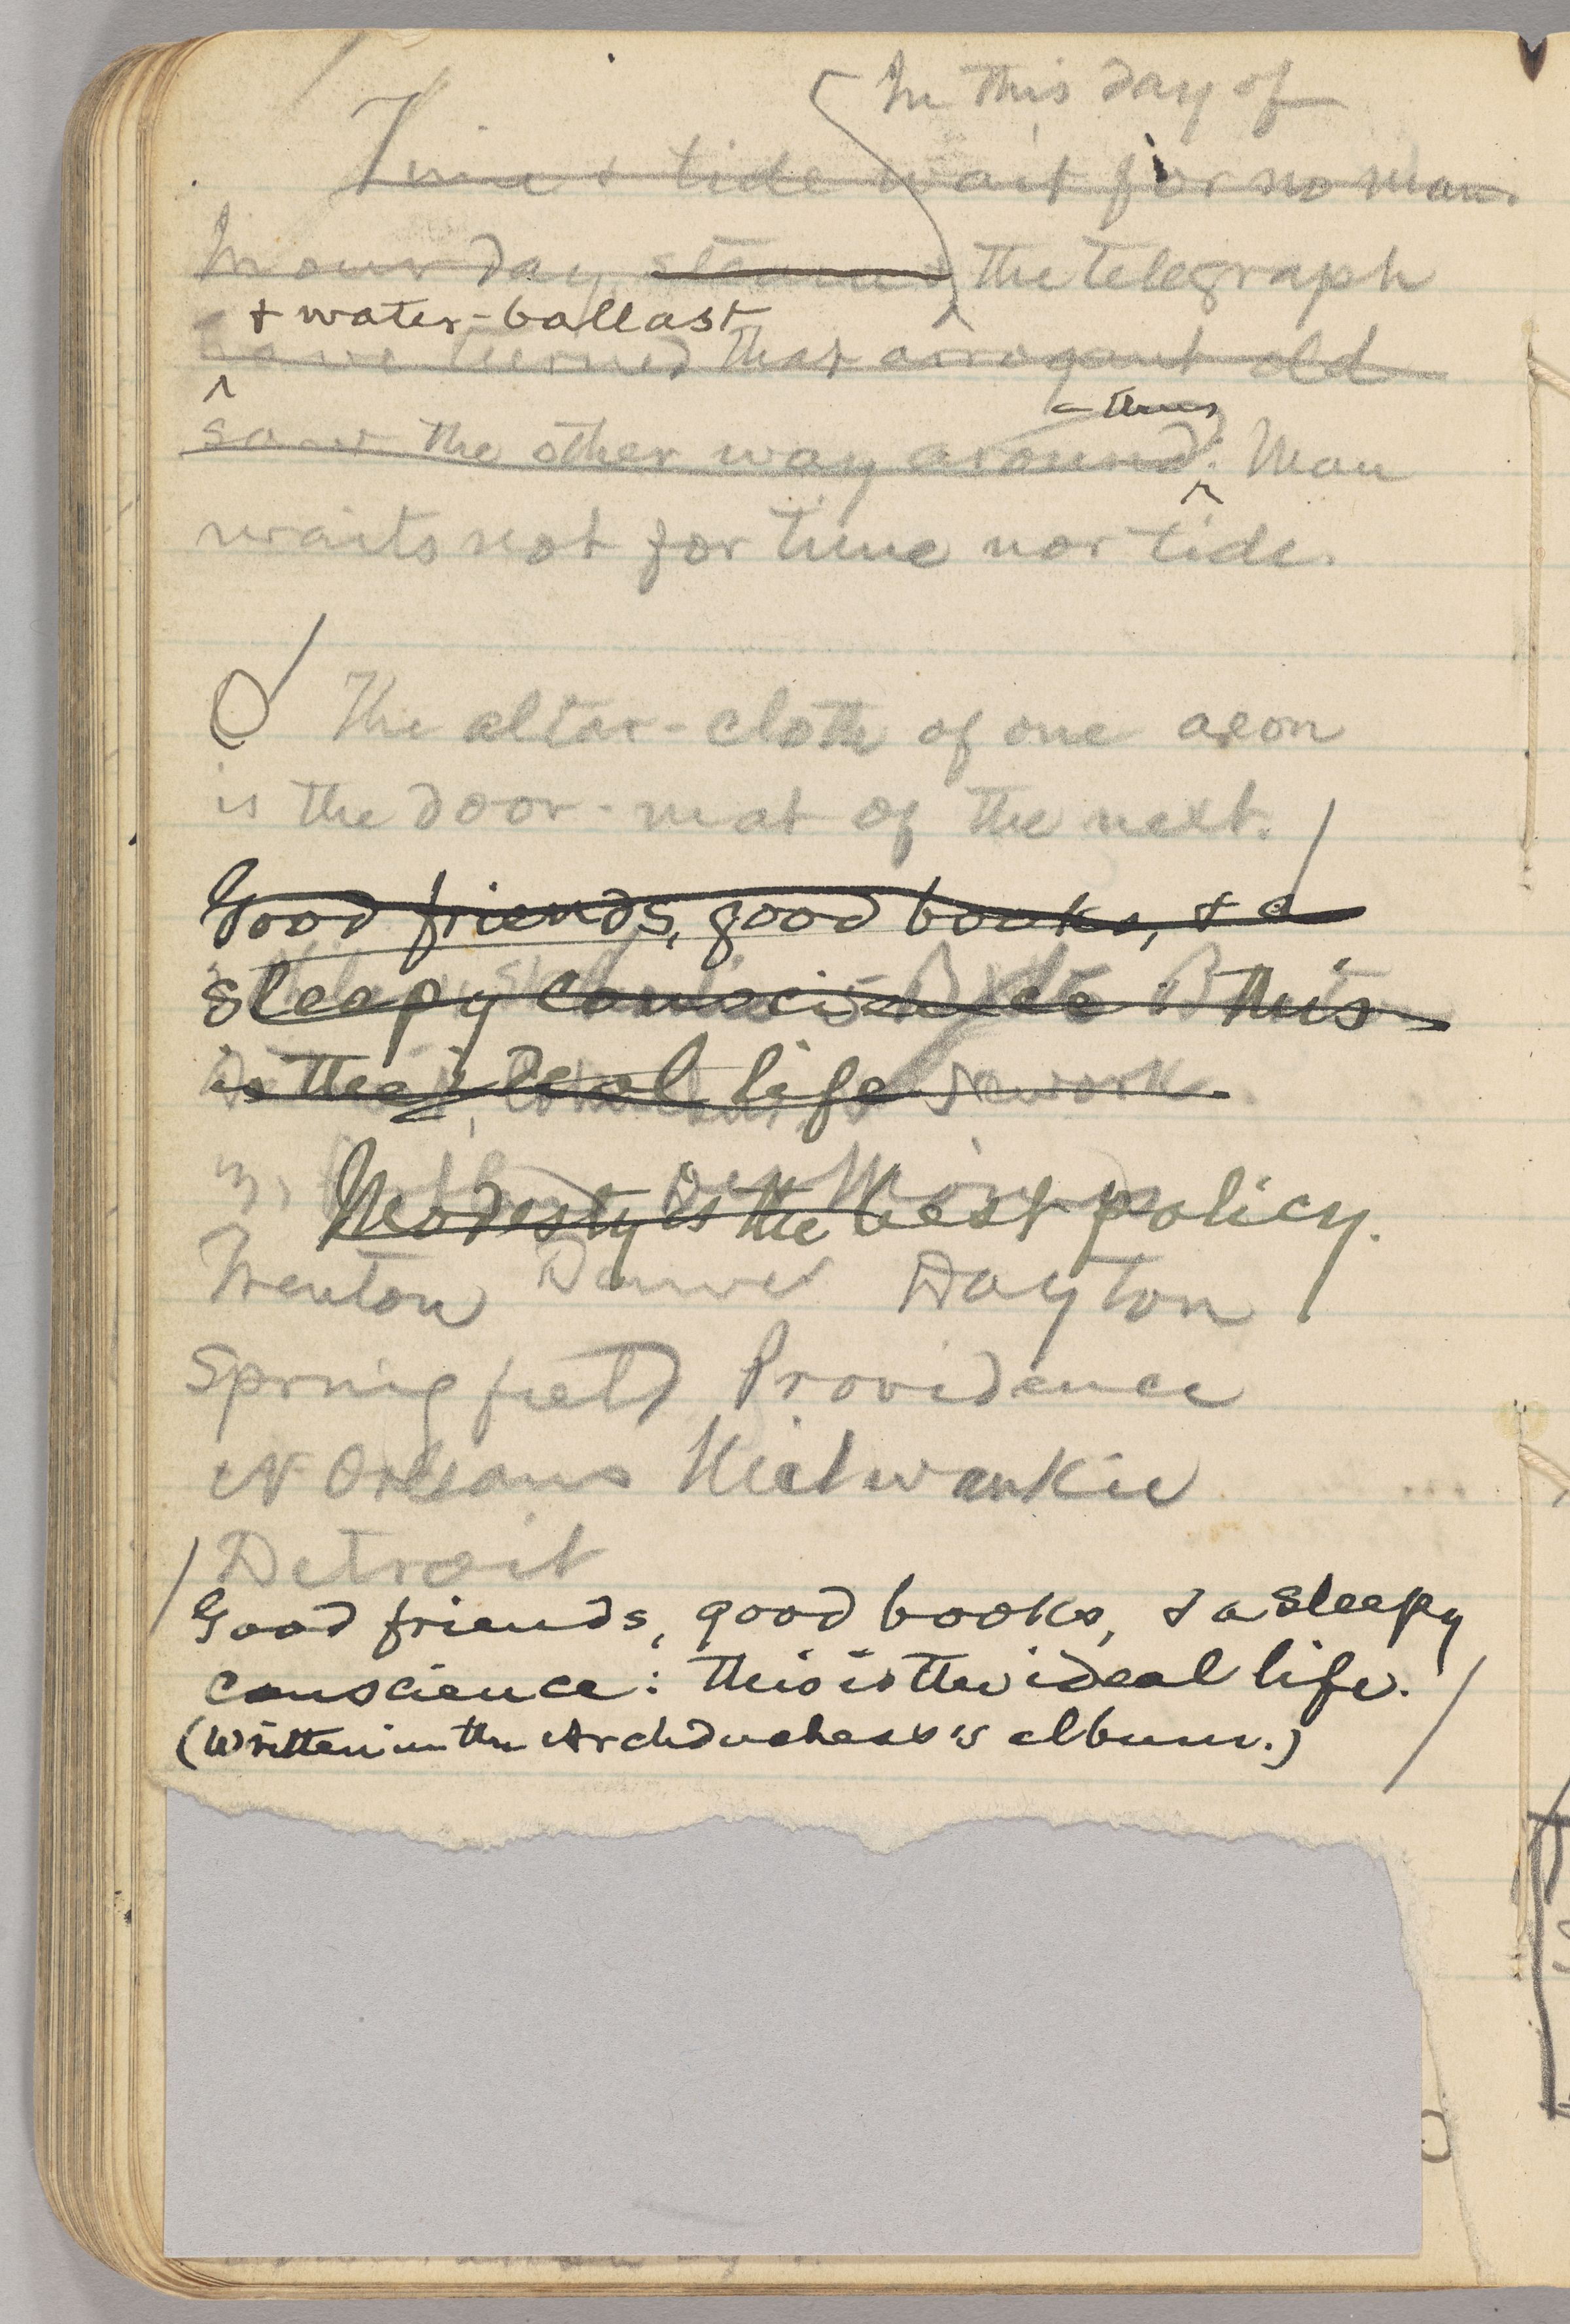 In this day of
Time & tide wait for no man.
In our day, steam & the telegraph
& water-ballast
have turned that arrogant old
- thus
saw the other way around: Man
waits not for time nor tide.
The altar-cloth of one aeon
is the door-mat of the next.
Good friends, good books, & a
sleepy conscience: this
is the ideal life.
Modesty is the best policy.
Trenton Denver Dayton
Springfield Providence
N Orleans Milwaukie
Detroit
Good friends, good books, & a sleepy
conscience: this is the ideal life.
(Written in the Archduchess's album.)